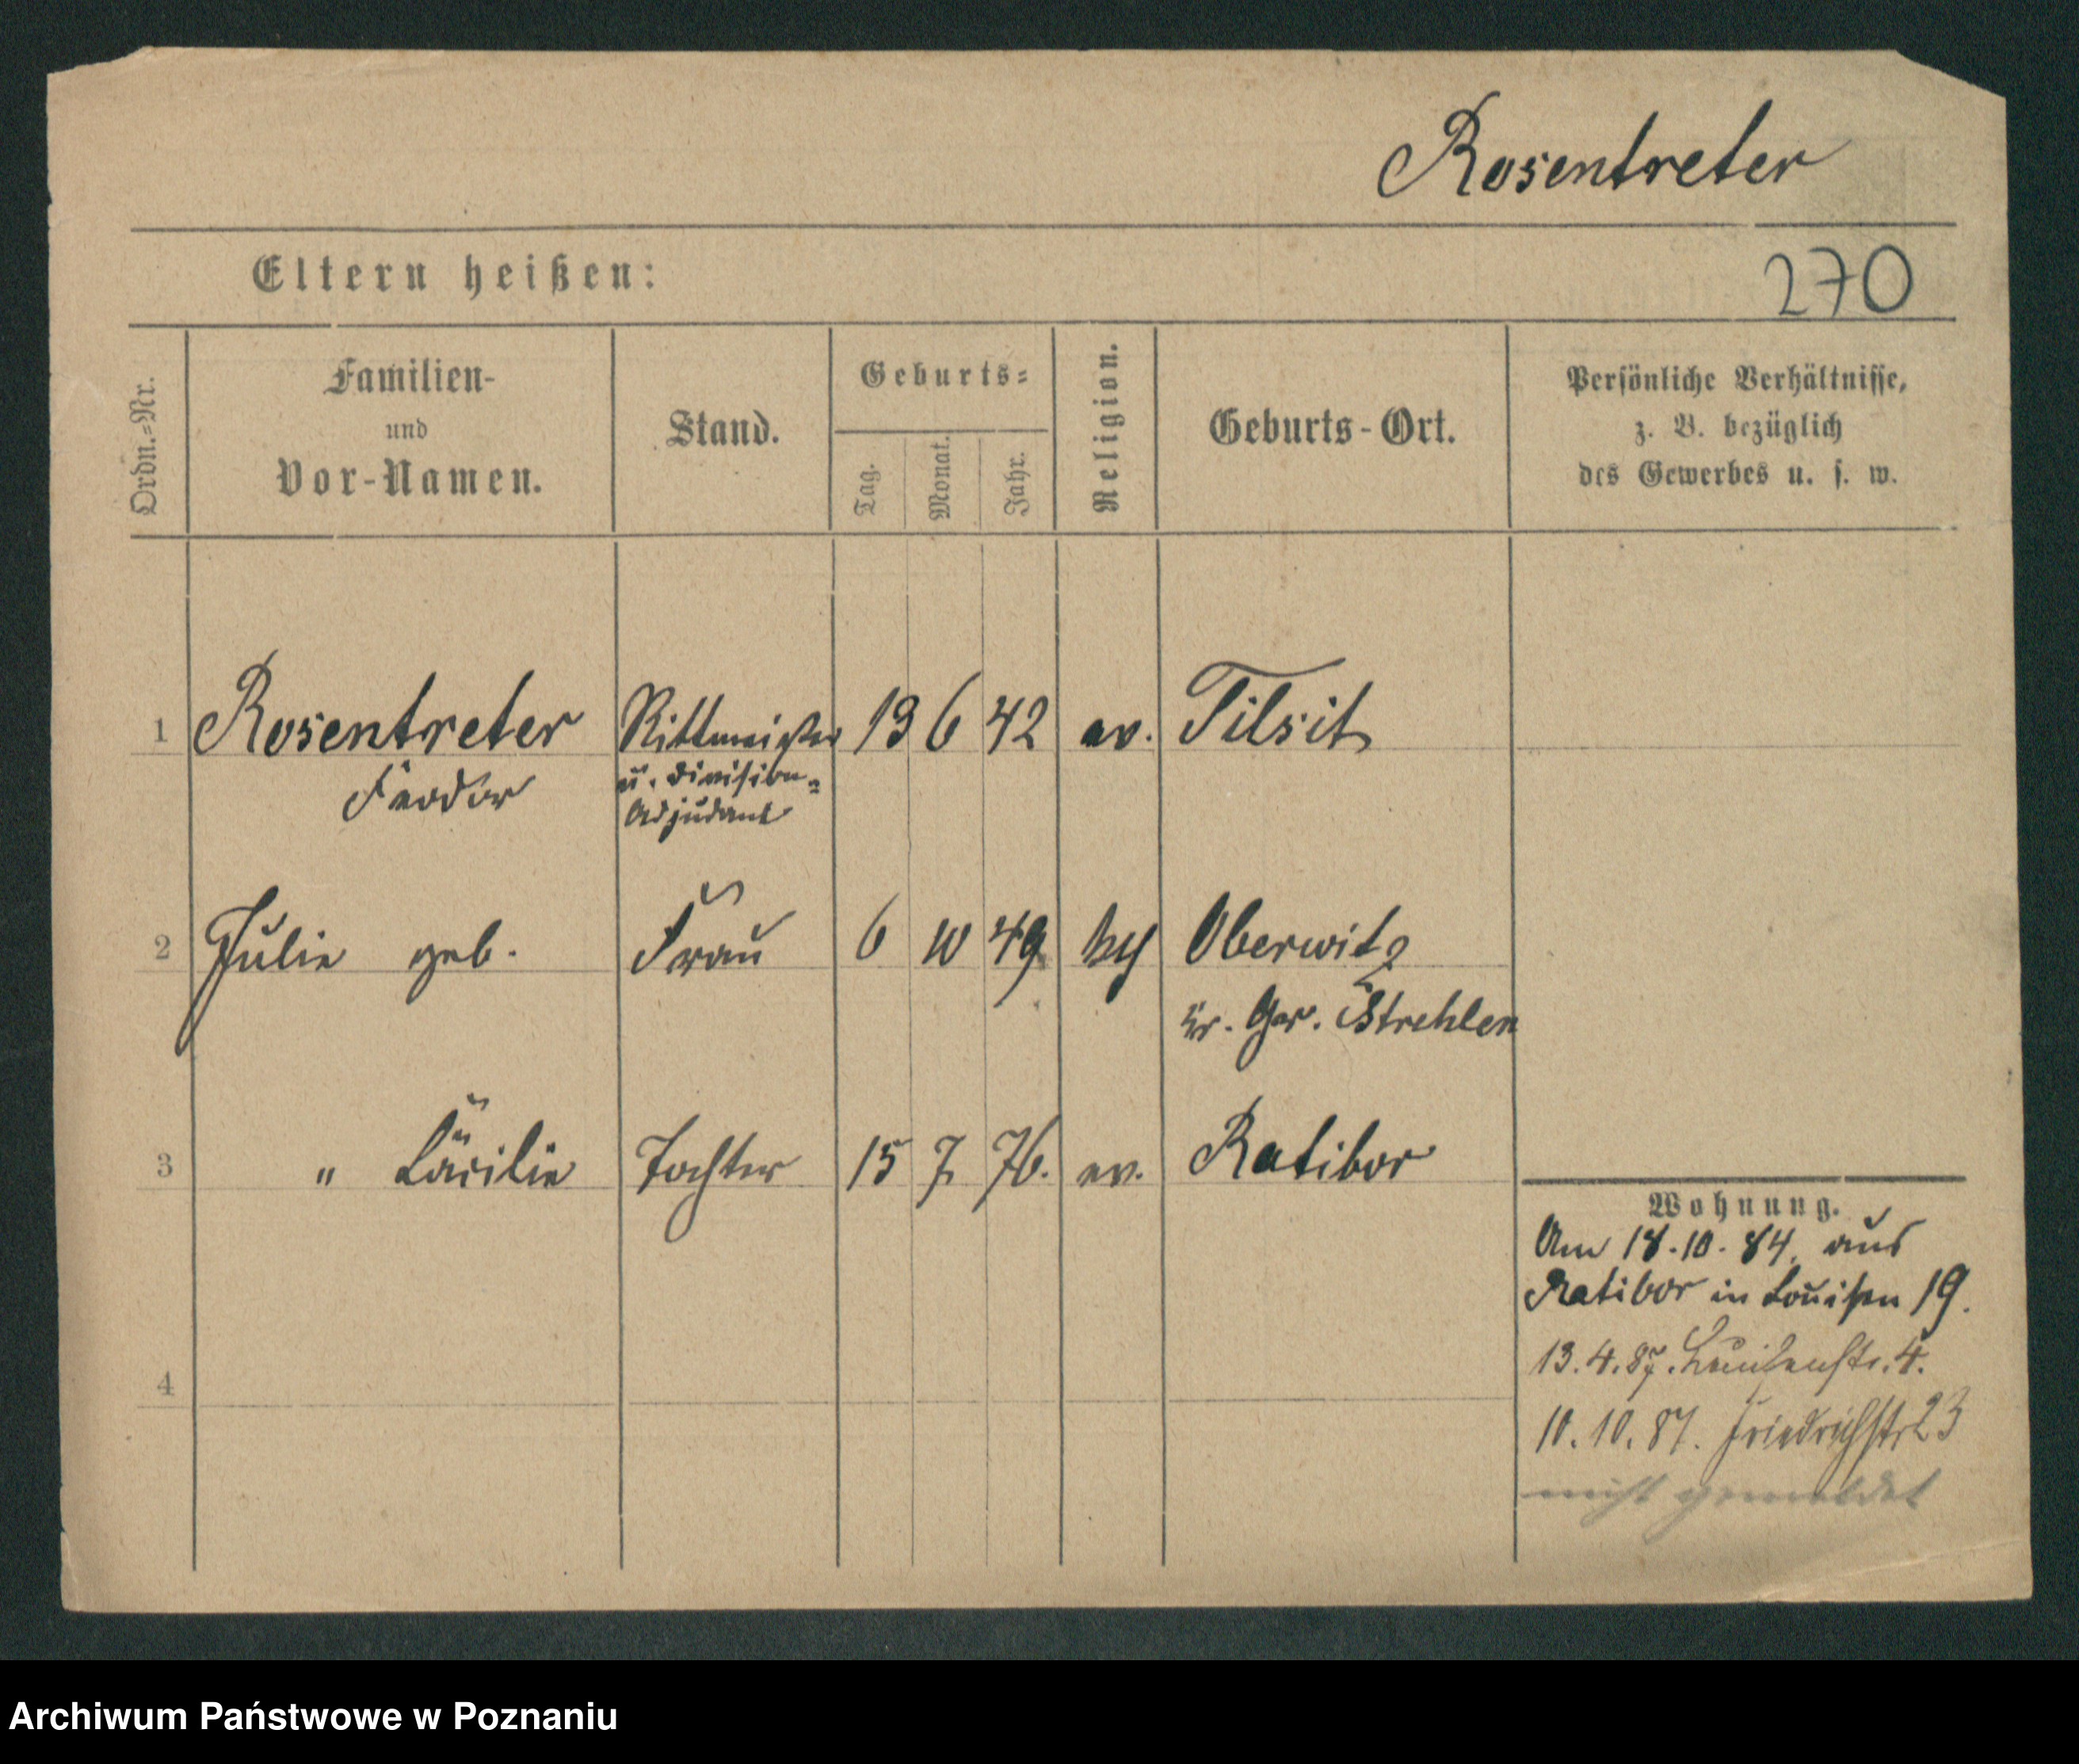 Rosentreter
Eltern heißen:
270
Ordn.=Nr.
Familien-
und
Vor-Namen.
Stand.
Geburts=
Tag.
Monat.
Jahr.
Religion.
Geburts-Ort.
Persönliche Verhältnisse,
z. B. bezüglich
des Gewerbes u. s. w.
1 Rosentreter Rittmeister 13 6 42 ev. Tilsit
Feodor u. Division=
Adjudant
2 Julie geb. Frau 6 10 49 Oberwitz
Kr. Gr. Strehlen
3 " Cäcilie Tochter 15 7 76. ev. Ratibor
Wohnung.
Am 18.10.84. aus
Ratibor in Louisen 19.
13.4.87. Louisenstr. 4.
10.10.87. Friedrichstr 23
nicht gemeldet
4
Archiwum Państwowe w Poznaniu